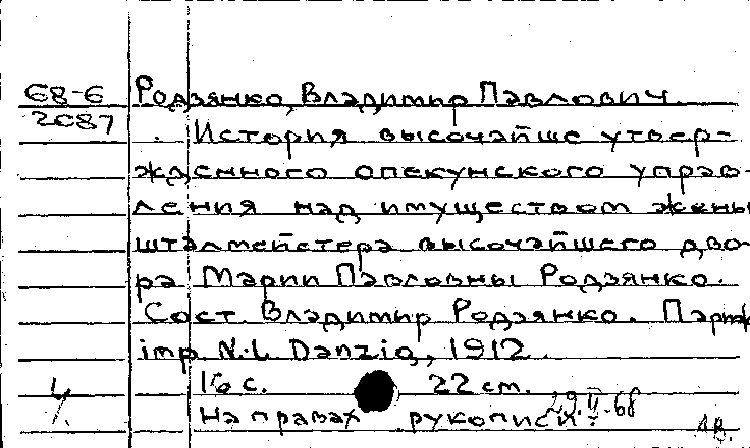 68-6
2087
Родзянко, Владимир Павлович.
История высочайше утвер-
жденного опекунского управ-
ления над имуществом жены
шталмейстера высочайшего дво-
ра Марии Павловны Родзянко.
Сост. Владимир Родзянко. Париж
imp. N.-L. Danzig, 1912.
16 с. 22 cm.
На правах рукописи.
29.II.68